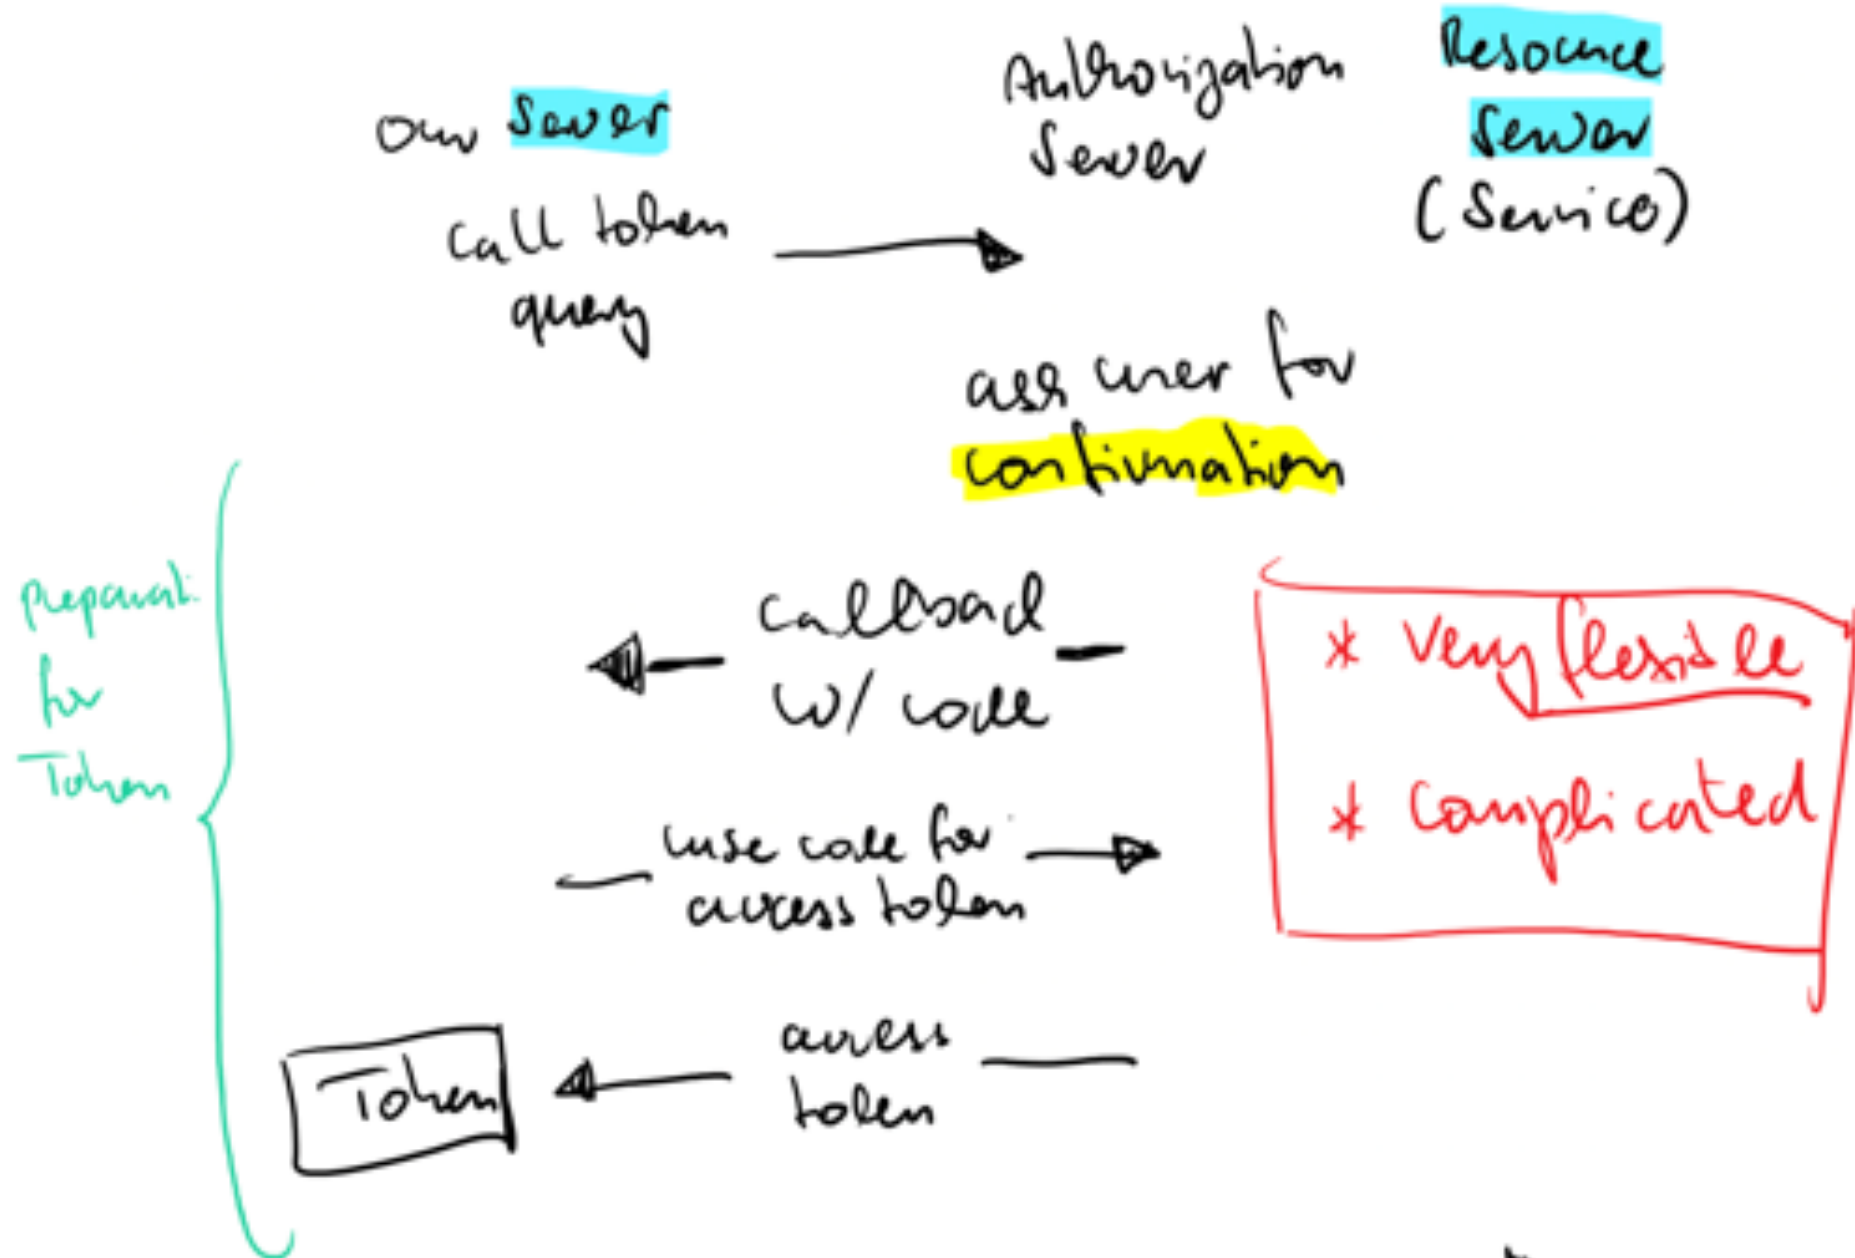 our Server
Authorization
Server
Resource
Server
(Service)
call token
query
ask user for
confirmation
preparati.
for
Token
callback
w/ code
* very flexible
* complicated
use code for
access token
access
token
Token